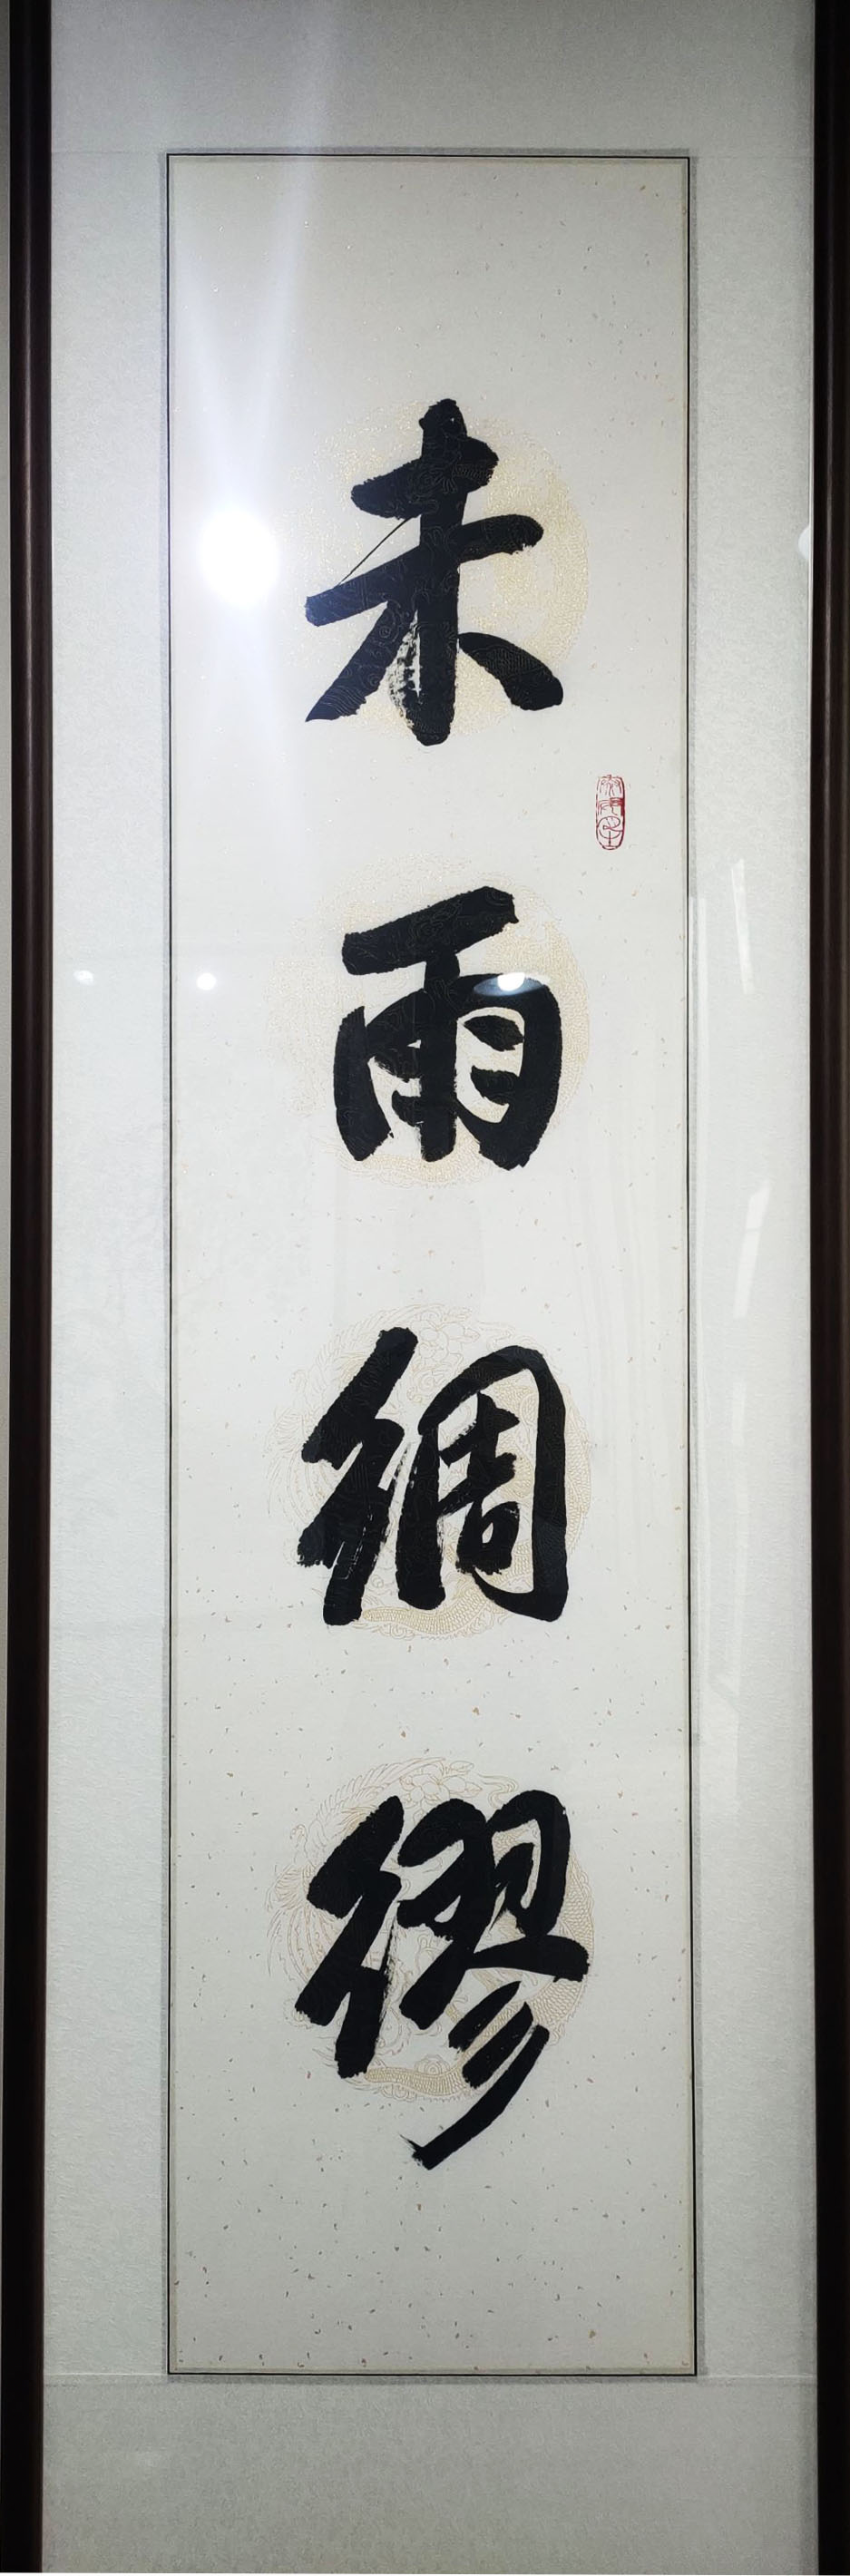 未雨綢繆